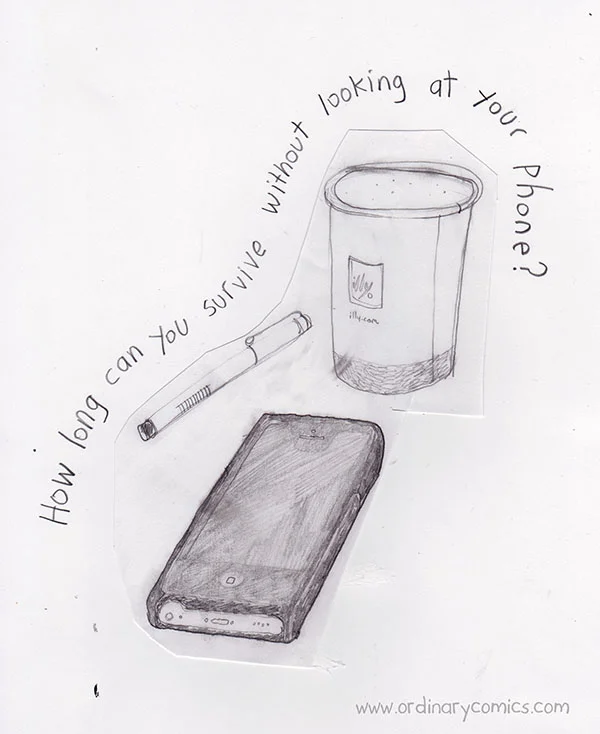 How long can you survive without looking at your phone?
illy
illy.com
www.ordinarycomics.com